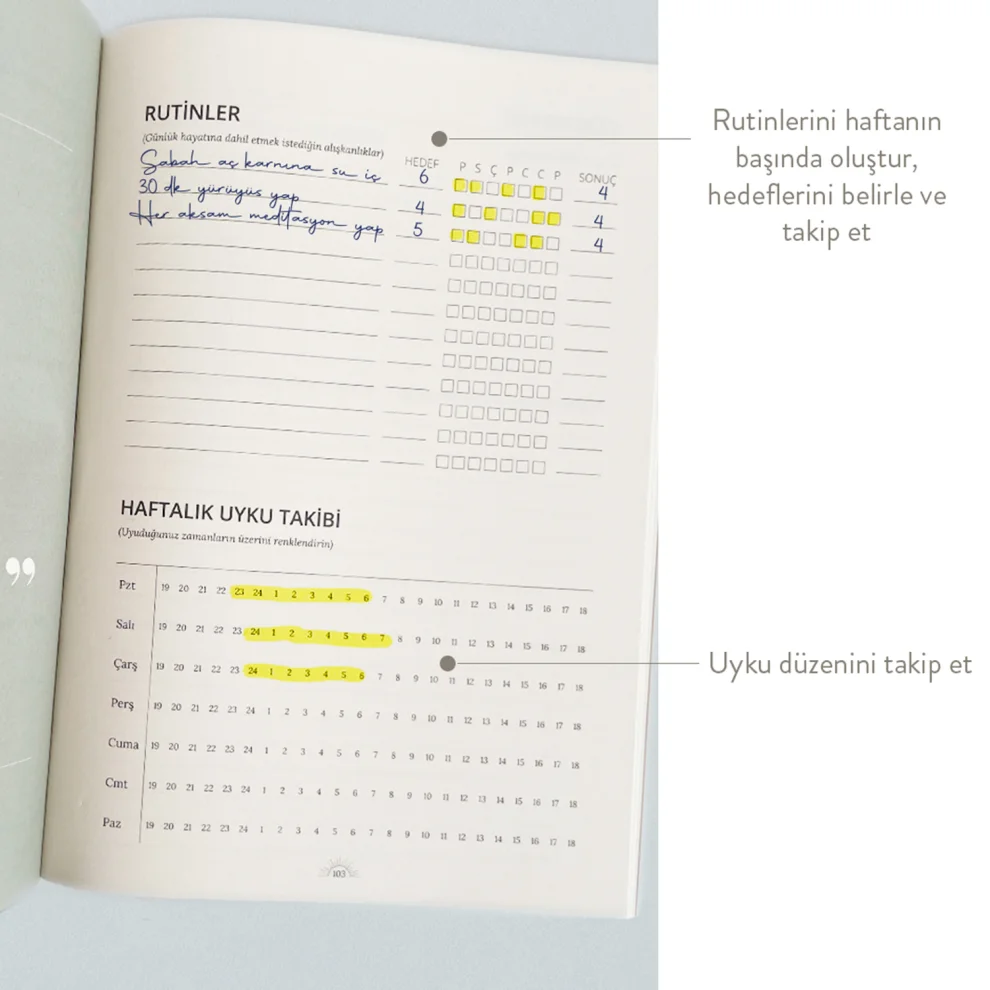 RUTİNLER
(Günlük hayatına dahil etmek istediğin alışkanlıklar)
HEDEF P S Ç P C C P SONUÇ
Sabah aç karnına su iç 6 4
30 dk yürüyüş yap 4 4
Her akşam meditasyon yap 5 4
HAFTALIK UYKU TAKİBİ
(Uyuduğunuz zamanların üzerini renklendirin)
Pzt 19 20 21 22 23 24 1 2 3 4 5 6 7 8 9 10 11 12 13 14 15 16 17 18
Salı 19 20 21 22 23 24 1 2 3 4 5 6 7 8 9 10 11 12 13 14 15 16 17 18
Çarş 19 20 21 22 23 24 1 2 3 4 5 6 7 8 9 10 11 12 13 14 15 16 17 18
Perş 19 20 21 22 23 24 1 2 3 4 5 6 7 8 9 10 11 12 13 14 15 16 17 18
Cuma 19 20 21 22 23 24 1 2 3 4 5 6 7 8 9 10 11 12 13 14 15 16 17 18
Cmt 19 20 21 22 23 24 1 2 3 4 5 6 7 8 9 10 11 12 13 14 15 16 17 18
Paz 19 20 21 22 23 24 1 2 3 4 5 6 7 8 9 10 11 12 13 14 15 16 17 18
103
Rutinlerini haftanın
başında oluştur,
hedeflerini belirle ve
takip et
Uyku düzenini takip et